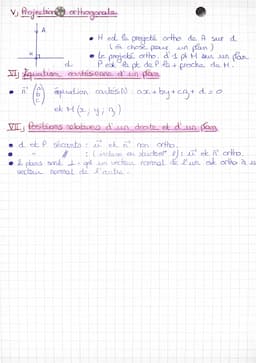 V, Projection orthogonale
A
H
d
• H est le projeté ortho de A sur d
(m chose pour un plan)
• Le projeté ortho d'1 pt M sur un plan
P est le pt de P le + proche de M.
VI, Equation cartésienne d'un plan
• n⃗ (a b c) équation cartésN : ax + by + cz + d = 0
et M(x; y; z)
VII, Positions relatives d'une droite et d'un plan
• d et P sécants : u⃗ et n⃗ non ortho.
• — // — : (incluse ou strictemt //) : u⃗ et n⃗ ortho.
• 2 plans sont ⊥ - qd un vecteur normal de l'un est ortho à un
vecteur normal de l'autre.